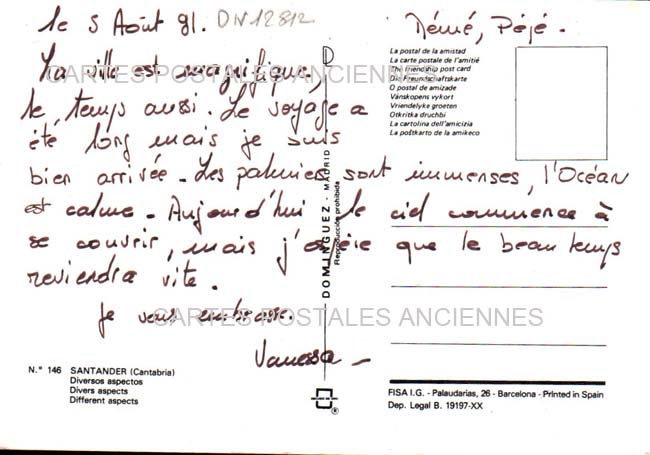 le 5 Août 91. DN12812
Mémé, Pépé.
La ville est magnifique,
le temps aussi. Le voyage a
été long mais je suis
bien arrivée. Les palmiers sont immenses, l'Océan
est calme. Aujourd'hui le ciel commence à
se couvrir, mais j'espère que le beau temps
reviendra vite.
je vous embrasse.
Vanessa
CARTES POSTALES ANCIENNES
CARTES POSTALES ANCIENNES
La postal de la amistad
La carte postale de l'amitié
The friendship post card
Die Freundschaftskarte
O postal de amizade
Vänskapens vykort
Vriendelyke groeten
Otkritka druchbi
La cartolina dell'amicizia
La poštkarto de la amikeco
DOMINGUEZ - MADRID
Reproducción prohibida
N.° 146 SANTANDER (Cantabria)
Diversos aspectos
Divers aspects
Different aspects
FISA I.G. - Palaudarias, 26 - Barcelona - Printed in Spain
Dep. Legal B. 19197-XX